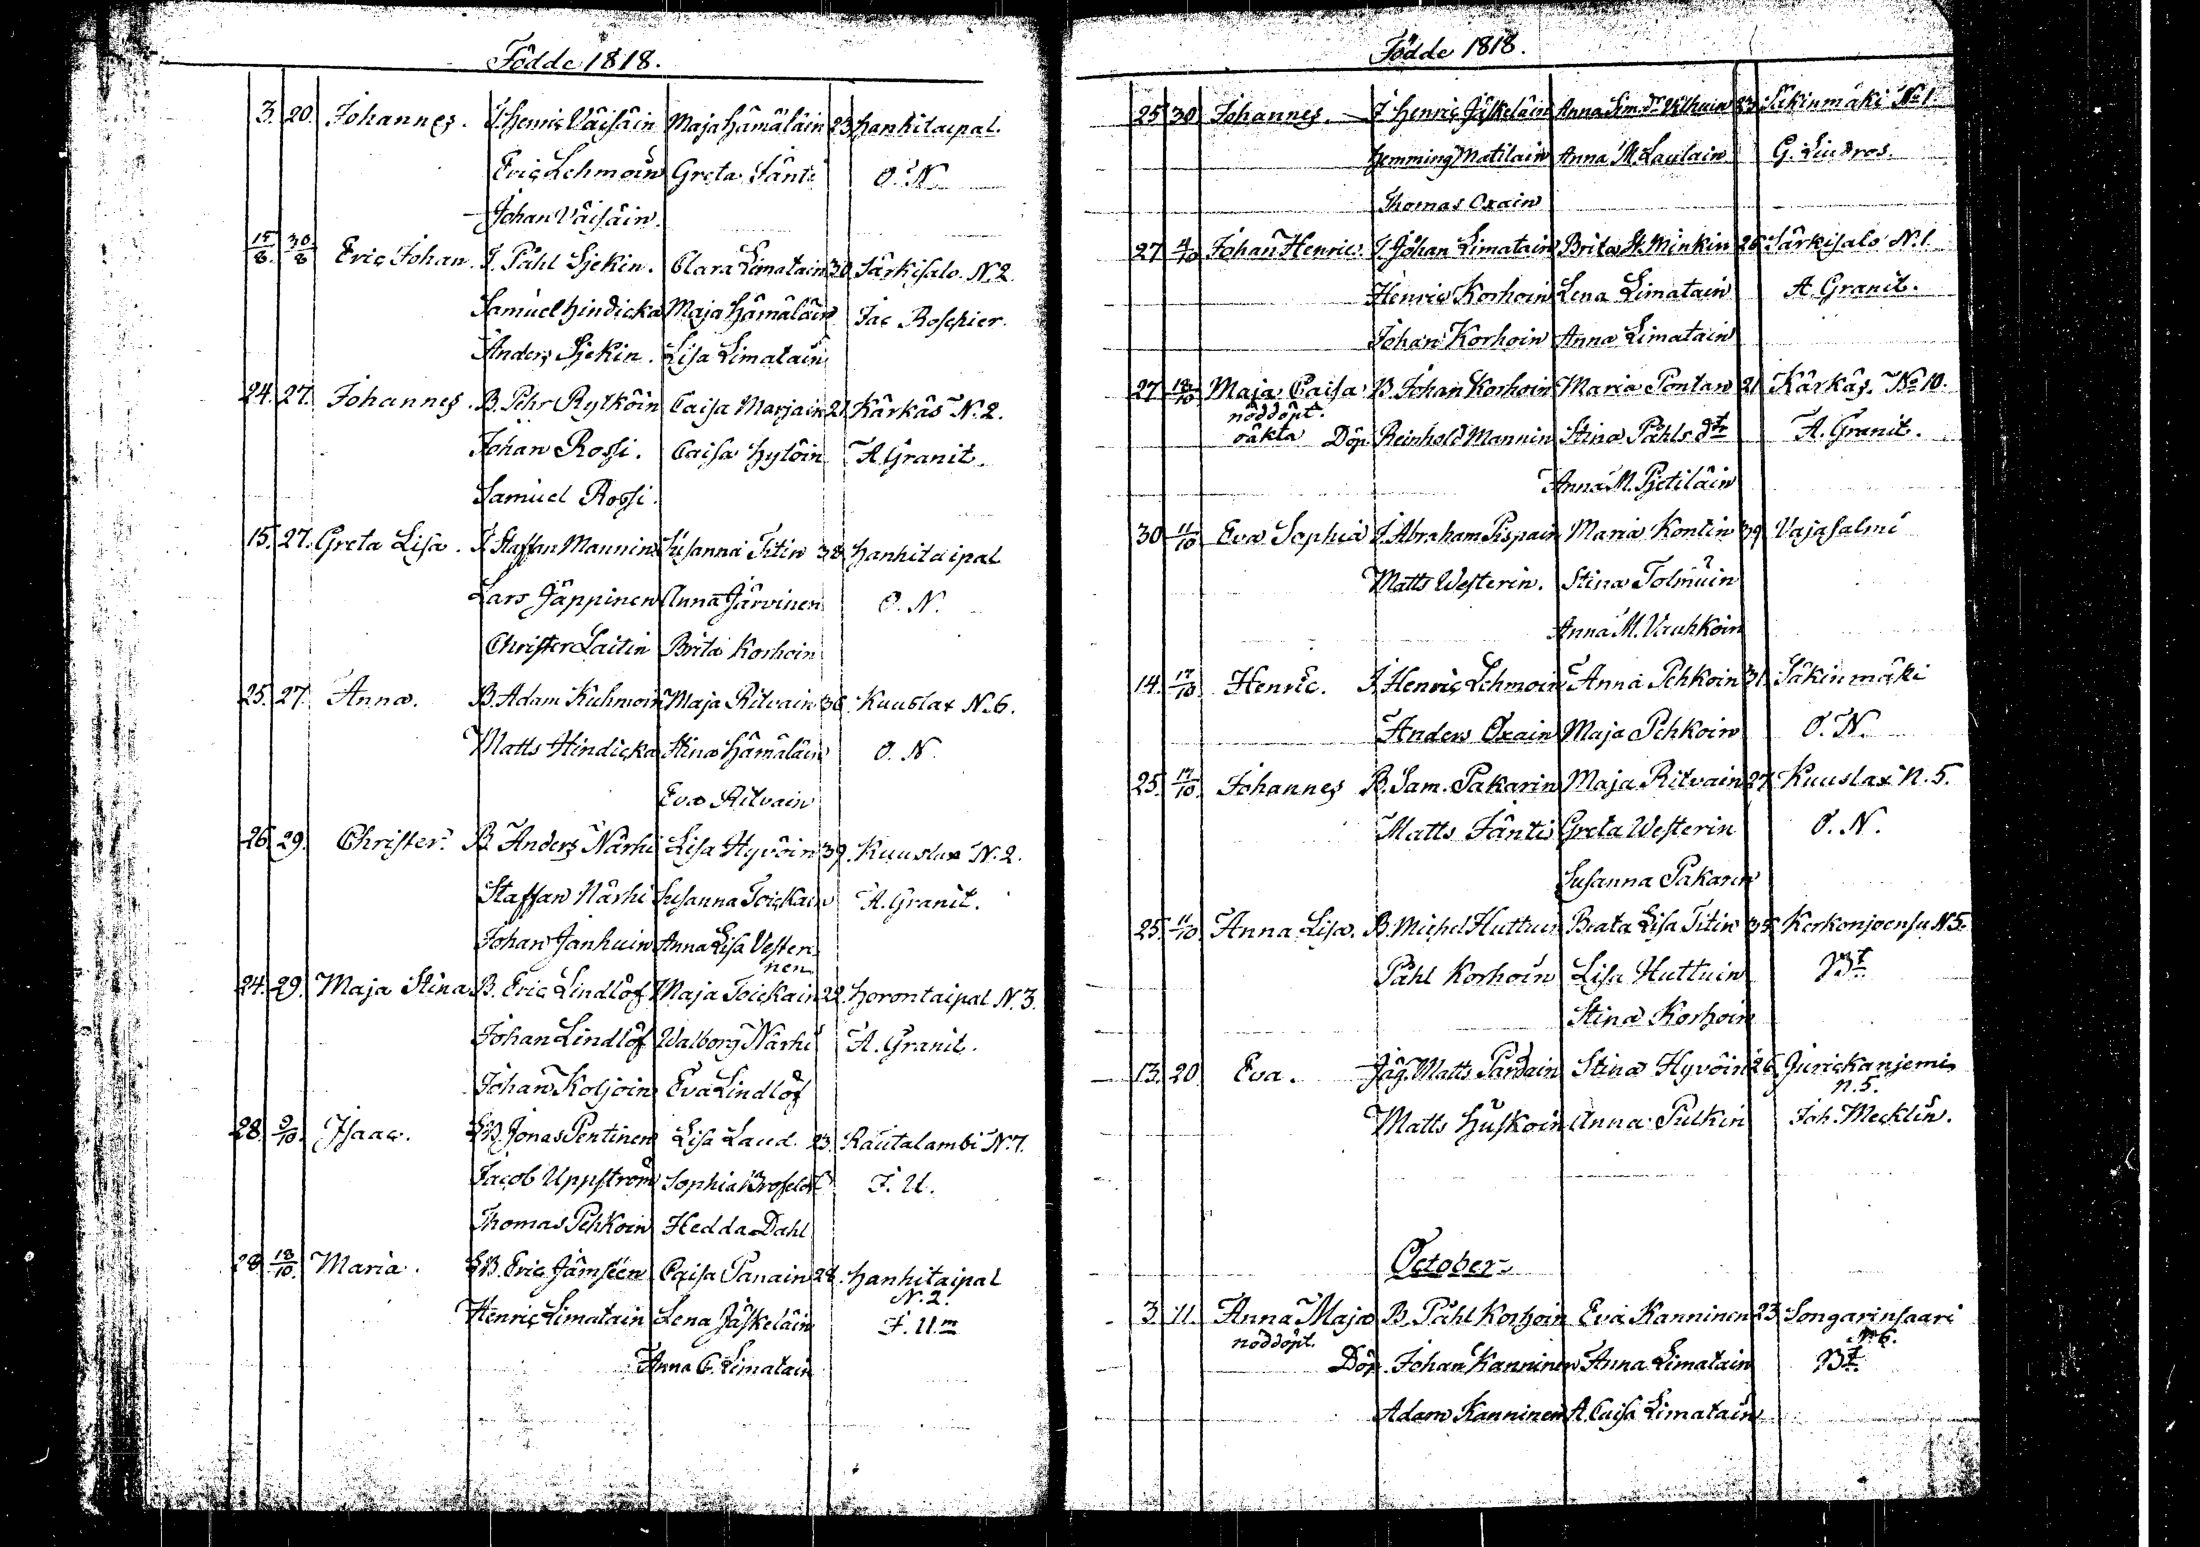 Födde 1818.
3. 20. Johannes. I. Henric Väisäin Maja Hämäläin 23 Hankitaipal.
Eric Lehmoin Greta Jänti O. N.
Johan Väisäin.
15/8. 30/8 Eric Johan. I. Påhl Sjekin. Clara Limatain 30. Särkisalo N. 2.
Samuel Hindicka Maja Hämäläin Jac Roschier.
Anders Sjekin. Lisa Limatain
24. 27. Johannes. B. Pehr Rytköin Caisa Marjain 21. Kärkäs N. 2.
Johan Rossi. Caisa Hytöin A. Granit.
Samuel Rossi.
15. 27. Greta Lisa. I. Staffan Mannin Susanna Titin 38 Hanhitaipal
Lars Jäppinen Anna Järvinen O. N.
Christer Laitin Brita Korhoin
25. 27. Anna. B. Adam Kuhmoin Maja Ritvain 36. Kuuslax N. 6.
Matts Hindicka Stina Hämäläin O. N.
Eva Ritvain
26 29. Christer. B. Anders Närhi Lisa Hyvöin 39. Kuuslax N. 2.
Staffan Närhi Susanna Toickain A. Granit.
Johan Janhuin Anna Lisa Vesteri
nen
24. 29. Maja Stina B. Eric Lindlöf Maja Toickain 22. Horontaipal N. 3.
Johan Lindlöf Walborg Närhi A. Granit.
Johan Koljoin Eva Lindlöf
28. 9/10. Isaac. SB. Jonas Pentinen Lisa Laud. 23. Rautalambi N. 7.
Jacob Uppström Sophia Brofeldt J. U.
Thomas Pehkoin Hedda Dahl
28. 18/10. Maria. SB. Eric Jämsén Caisa Panain 24. Hanhitaipal
N. 2.
Henric Limatain Lena Jäskeläin J. U.m
Anna C. Limatain
Födde 1818.
25 30 Johannes. I Henric Jäskeläin Anna Sim. dr 23 Säkinmäki No 1.
Hemming Matilain Anna M. Laulain G. Lindros.
Thomas Oxain
27 4/10 Johan Henric. I Johan Limatain Brita St. Minkin 26 Särkisalo N. 1.
Henric Korhoin Lena Limatain A Granit.
Johan Korhoin Anna Limatain
27 18/10 Maja Caisa B. Johan Korhoin Maria Pontan 21 Kärkäs. No 10.
nöddöpt.
oäkta Döp. Reinhold Mannin Stina Påhls dtr A. Granit.
Anna M. Pjetiläin
30 11/10 Eva Sophia I. Abraham Pispain Maria Kontin 39 Vajasalmi
Matts Westerin. Stina Tolmuin
Anna M. Vauhkoin
14. 17/10. Henric. I. Henric Lehmoin Anna Pehkoin 31. Säkinmäki
Anders Oxain Maja Pehkoin O. N.
25. 17/10. Johannes B. Sam. Pakarin Maja Ritvain 27. Kuuslax N. 5.
Matts Jäntis Greta Westerin O. N.
Susanna Pakarin
25. 11/10 Anna Lisa. B. Michel Huttun Beata Lisa Titin 35. Kerkonjoensu N 5.
Påhl Korhoin Lisa Huttuin Bt
Stina Korhoin
13. 20 Eva. Jäg. Matts Pardain Stina Hyvöin 26. Jurickaniemi
n. 5.
Matts Huskoin Anna Pulkin Joh. Mecklin.
October
3 11. Anna Maja B. Påhl Korhoin Eva Kanninen 23 Songarinsaari
nöddöpt. N 6.
Döp. Johan Kanninen Anna Limatain Bt.
Adam Kanninen A. Caisa Limatain